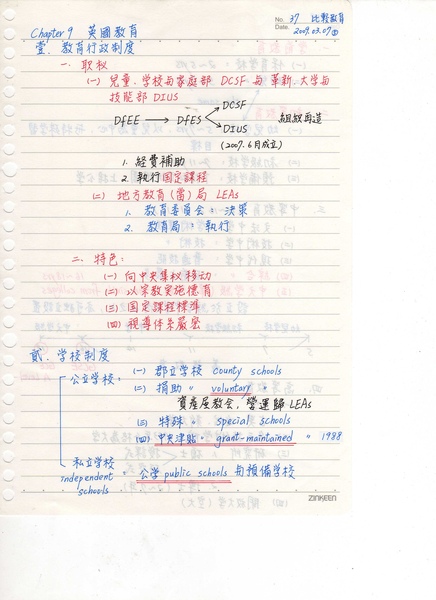 No. 37 比較教育
Date. 2009.03.07 ①
Chapter 9 英國教育
壹、教育行政制度
一、职权
(一) 兒童、学校与家庭部 DCSF 与 革新、大学与
技能部 DIUS
DfEE → DfES DCSF
DIUS 組織再造
(2007.6月成立)
1. 經費補助
2. 執行国定課程
(二) 地方教育(當)局 LEAs
1. 教育委員会: 決策
2. 教育局: 執行
二、特色:
(一) 向中央集权移动
(二) 以宗教实施德育
(三) 国定課程標準
(四) 視導体系嚴密
貳、学校制度
公立学校: (一) 郡立学校 county schools
(二) 捐助 〃 voluntary 〃
資產屬教会, 營運歸 LEAs
(三) 特殊 〃 special schools
(四) 中央津貼 〃 grant-maintained 〃 1988
私立学校: 公学 public schools 与預備学校
independent schools
ZINKEEN